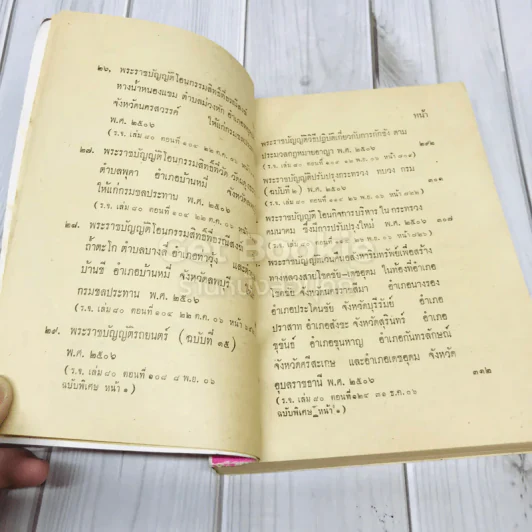 ๒๖. พระราชบัญญัติโอนกรรมสิทธิ์ที่ธรณีสงฆ์
ทางน้ำหนองแขม ตำบลม่วงหัก อำเภอ
จังหวัดนครสวรรค์ ให้แก่กรมชล
พ.ศ. ๒๕๐๖
(ร.จ. เล่ม ๘๐ ตอนที่ ๑๐๔ ๒๒ ต.ค. ๐๖
๒๗. พระราชบัญญัติโอนกรรมสิทธิ์ที่วัด
ตำบลพุคา อำเภอบ้านหมี่ จังหวัด
ให้แก่กรมชลประทาน พ.ศ. ๒๕๐๖
(ร.จ. เล่ม ๘๐ ตอนที่ ๑๐๔ ๒๒ ต.ค. ๐๖
๒๘. พระราชบัญญัติโอนกรรมสิทธิ์ที่ธรณีสงฆ์
ถ้ำตะโก ตำบลบางลี่ อำเภอท่าวุ้ง และ
บ้านชี อำเภอบ้านหมี่ จังหวัดลพบุรี
กรมชลประทาน พ.ศ. ๒๕๐๖
(ร.จ. เล่ม ๘๐ ตอนที่ ๑๐๔ ๒๒ ต.ค. ๐๖ หน้า
๒๙. พระราชบัญญัติรถยนตร์ (ฉบับที่ ๑๕)
พ.ศ. ๒๕๐๖
(ร.จ. เล่ม ๘๐ ตอนที่ ๑๐๘ ๘ พ.ย. ๐๖
ฉบับพิเศษ หน้า ๑)
หน้า
พระราชบัญญัติวิธีปฏิบัติเกี่ยวกับการกักขัง ตาม
ประมวลกฎหมายอาญา พ.ศ. ๒๕๐๖ ๒๙๒
(ร.จ. เล่ม ๘๐ ตอนที่
พระราชบัญญัติปรับปรุงกระทรวง ทบวง กรม
(ฉบับที่ ๒) พ.ศ. ๒๕๐๖ ๓๑๓
(ร.จ. เล่ม ๘๐ ตอนที่
พระราชบัญญัติโอนกิจการบริหาร ใน กระทรวง
คมนาคม ซึ่งมีการปรับปรุงใหม่ พ.ศ. ๒๕๐๖ ๓๑๗
(ร.จ. เล่ม ๘๐ ตอนที่
พระราชบัญญัติเวนคืนอสังหาริมทรัพย์เพื่อสร้าง
ทางหลวงสายโชคชัย-เดชอุดม ในท้องที่อำเภอ
โชคชัย จังหวัดนครราชสีมา อำเภอนางรอง
อำเภอประโคนชัย จังหวัดบุรีรัมย์ อำเภอ
ปราสาท อำเภอสังขะ จังหวัดสุรินทร์ อำเภอ
ขุขันธ์ อำเภอขุนหาญ อำเภอกันทรลักษณ์
จังหวัดศรีสะเกษ และอำเภอเดชอุดม จังหวัด
อุบลราชธานี พ.ศ. ๒๕๐๖ ๓๓๒
(ร.จ. เล่ม ๘๐ ตอนที่ ๑๒๔ ๓๑ ธ.ค. ๐๖
ฉบับพิเศษ หน้า ๑)